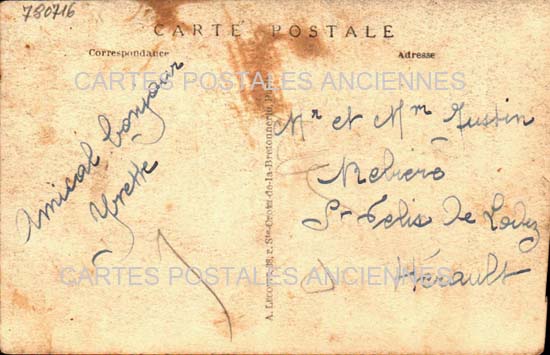 780716
CARTE POSTALE
Correspondance
Adresse
CARTES POSTALES ANCIENNES
Amical bonjour
Yvette
Mr et Mm Justin
St Felix de Lodez
Hérault
CARTES POSTALES ANCIENNES
r. Ste-Croix-de-la-Bretonnerie